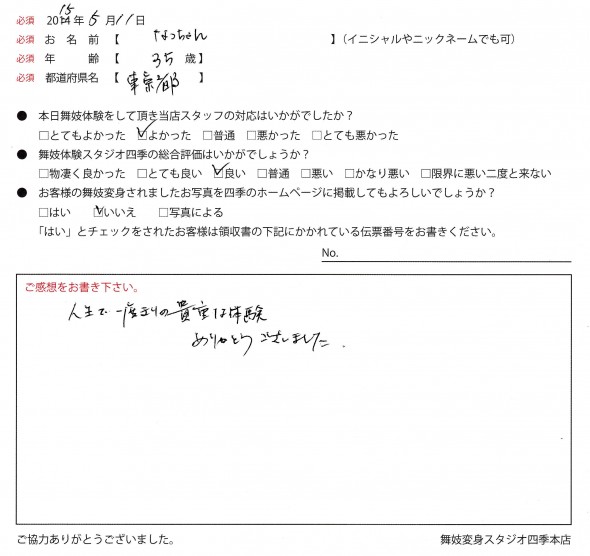 必須 2015年 5月11日
必須 お名前【 なっちゃん 】(イニシャルやニックネームでも可)
必須 年齢【 35歳】
必須 都道府県名【 東京都 】
● 本日舞妓体験をして頂き当店スタッフの対応はいかがでしたか?
□とてもよかった ☑よかった □普通 □悪かった □とても悪かった
● 舞妓体験スタジオ四季の総合評価はいかがでしょうか?
□物凄く良かった □とても良い ☑良い □普通 □悪い □かなり悪い □限界に悪い二度と来ない
● お客様の舞妓変身されましたお写真を四季のホームページに掲載してもよろしいでしょうか?
□はい ☑いいえ □写真による
「はい」とチェックをされたお客様は領収書の下記にかかれている伝票番号をお書きください。
No.
ご感想をお書き下さい。
人生で一度きりの貴重な体験
ありがとうございました.
ご協力ありがとうございました。
舞妓変身スタジオ四季本店